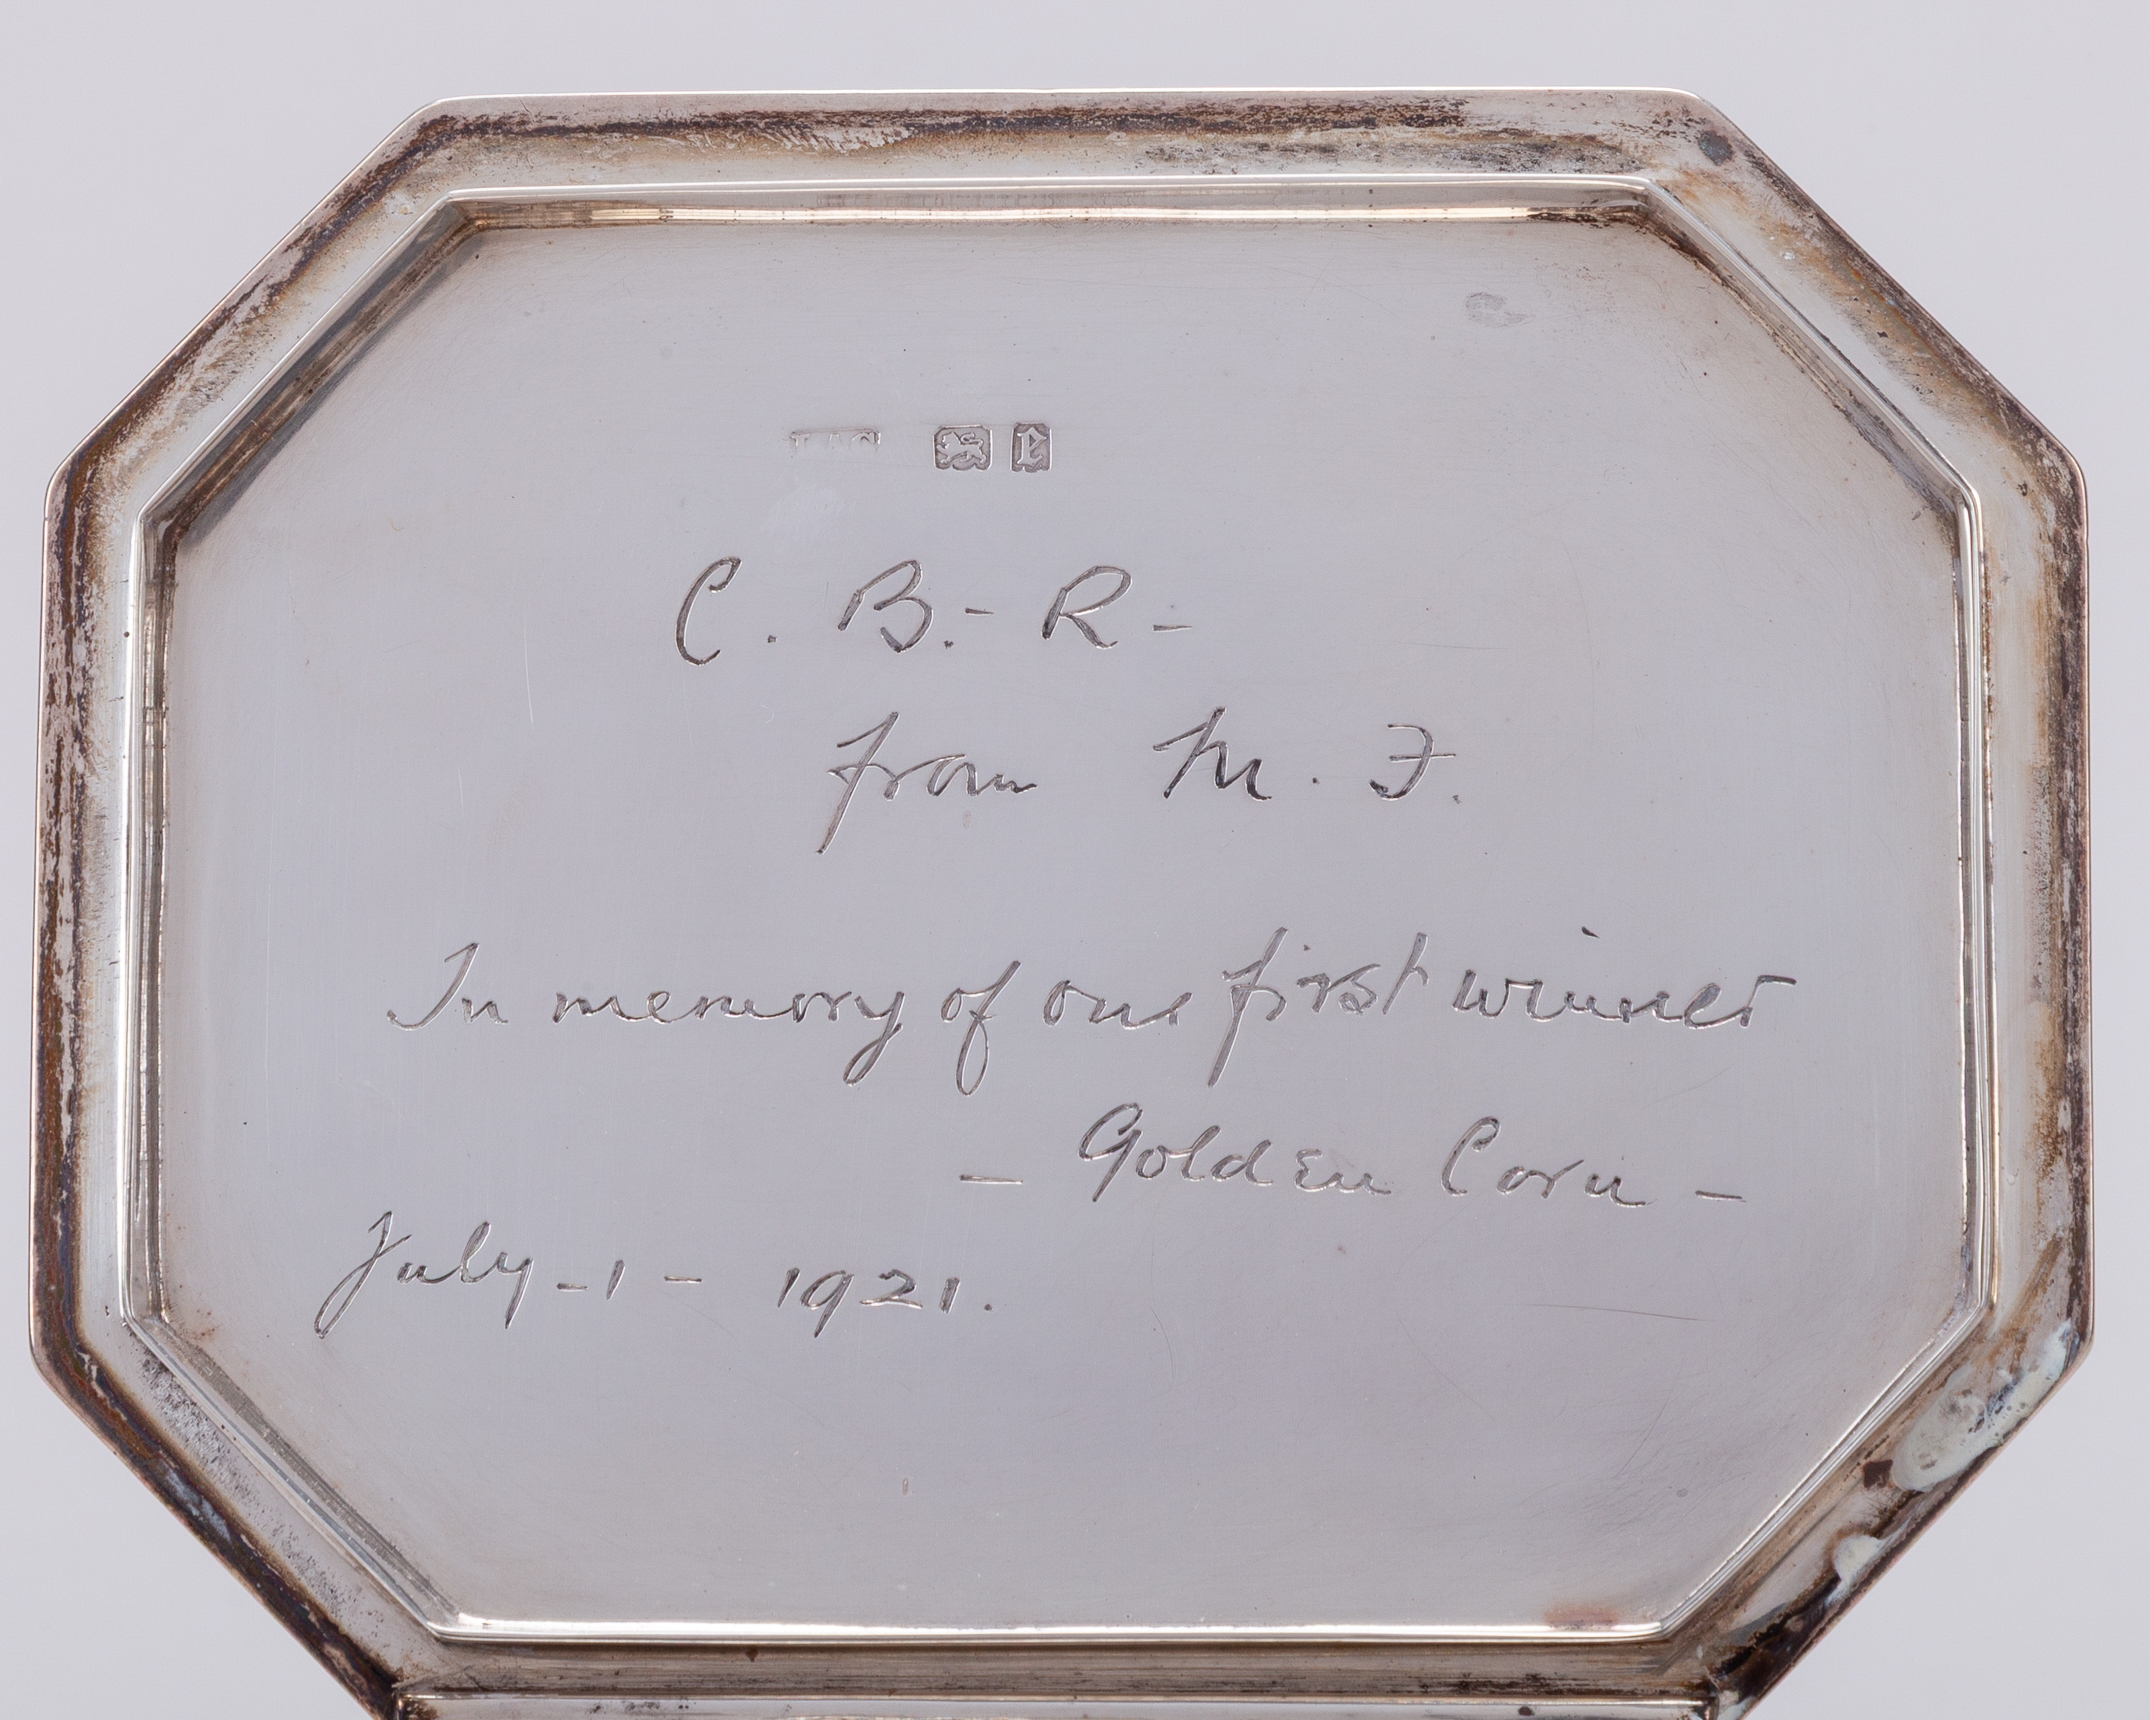 C. B.- R-
from M. F.
In memory of our first winner
- Golden Corn -
July - 1 - 1921.